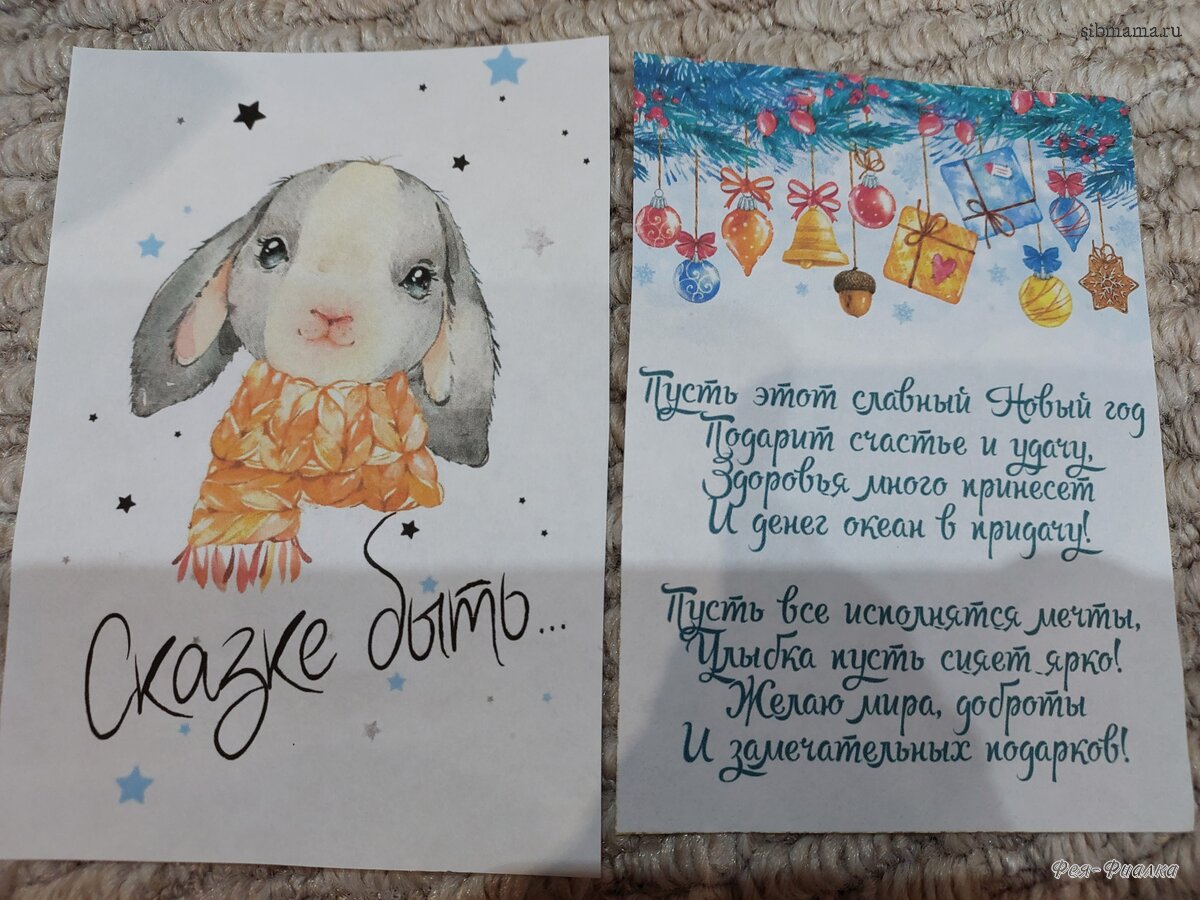 sibmama.ru
Сказке быть...
Пусть этот славный Новый год
Подарит счастье и удачу,
Здоровья много принесет
И денег океан в придачу!
Пусть все исполнятся мечты,
Улыбка пусть сияет ярко!
Желаю мира, доброты
И замечательных подарков!
Фея-Фиалка